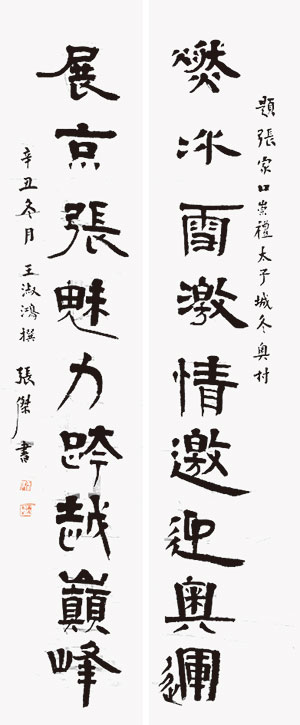 題張家口崇禮太子城冬奧村
燃冰雪激情邀迎奧運
展京張魅力跨越巔峰
辛丑冬月 王淑鴻撰 張傑書